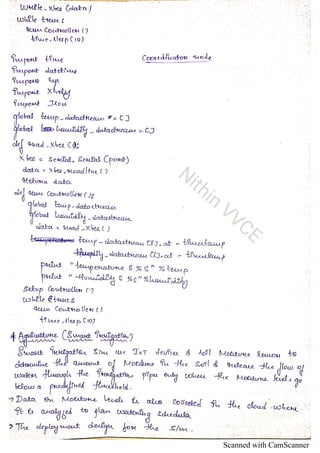 while_xbee (data)
while true :
run Controller ()
time.sleep (10)
Coordinator node
import time
import datetime
import sys
import xively
import Json
global temp_datastream = [ ]
global humidity_datastream = [ ]
def read_xbee ():
xbee = serial. serial (port)
data = xbee.readline ()
return data
def run Controller ():
global temp_datastream
global humidity_datastream
data = read_xbee ()
temp_datastream [ ]. at = timestamp
humidity_datastream [ ]. at = timestamp
print "temperature is %s" % temp
print "Humidity is %s" % humidity
setup Controller ()
while true :
run Controller ()
time.sleep (10)
Agriculture (Smart Irrigation)
Smart Irrigation s/m use IoT devices & soil Moisture sensors to
determine the amount of Moisture in the soil & release the flow of
water through the Irrigation pipe only when the Moisture levels go
below a predefined threshold.
→ Data on Moisture levels is also collected in the cloud where
it is analyzed to plan watering schedule
→ The deployment design for the s/m.
Nithin VVCE
Scanned with CamScanner